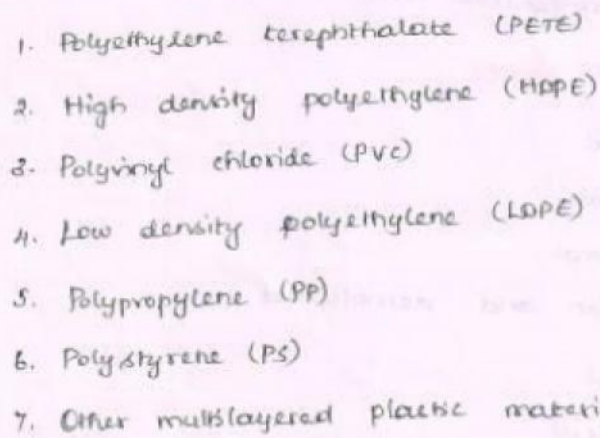 1. Polyethylene terephthalate (PETE)
2. High density polyethylene (HDPE)
3. Polyvinyl chloride (PVC)
4. Low density polyethylene (LDPE)
5. Polypropylene (PP)
6. Polystyrene (PS)
7. Other multilayered plastic materi